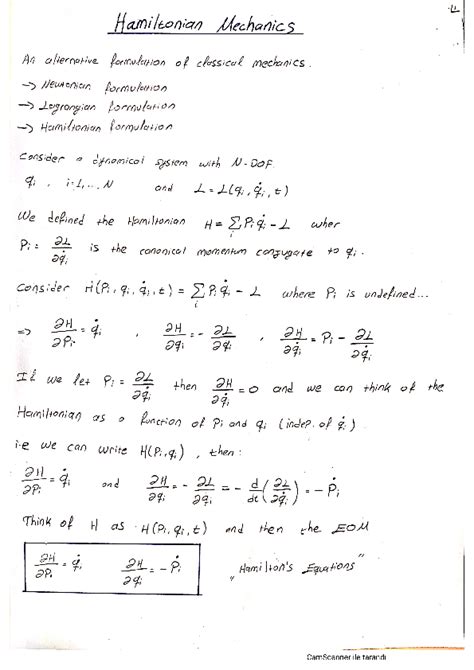 Hamiltonian Mechanics
An alternative formulation of classical mechanics.
→ Newtonian formulation
→ Lagrangian formulation
→ Hamiltonian formulation
Consider a dynamical system with N-DOF.
qᵢ , i=1,... N and L = L(qᵢ, q̇ᵢ, t)
We defined the Hamiltonian H = ∑ᵢ Pᵢ q̇ᵢ - L wher
Pᵢ = ∂L/∂q̇ᵢ is the canonical momentum conjugate to qᵢ.
Consider H(Pᵢ, qᵢ, q̇ᵢ, t) = ∑ᵢ Pᵢ q̇ᵢ - L where Pᵢ is undefined...
⇒ ∂H/∂Pᵢ = q̇ᵢ , ∂H/∂qᵢ = - ∂L/∂qᵢ , ∂H/∂q̇ᵢ = Pᵢ - ∂L/∂q̇ᵢ
If we let Pᵢ = ∂L/∂q̇ᵢ then ∂H/∂q̇ᵢ = 0 and we can think of the
Hamiltonian as a function of Pᵢ and qᵢ (indep. of q̇ᵢ)
i.e we can write H(Pᵢ, qᵢ) , then:
∂H/∂Pᵢ = q̇ᵢ and ∂H/∂qᵢ = - ∂L/∂qᵢ = - d/dt (∂L/∂q̇ᵢ) = - Ṗᵢ
Think of H as H(Pᵢ, qᵢ, t) and then the EOM
∂H/∂Pᵢ = q̇ᵢ ∂H/∂qᵢ = - Ṗᵢ „Hamilton's Equations"
CamScanner ile tarandı